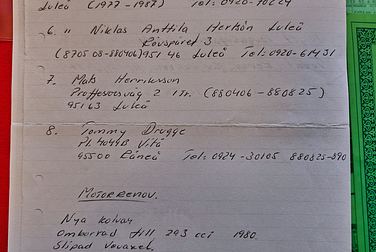 Luleå (1977-1987) Tel: 0920-70224
6. " Niklas Anttila Hertsön Luleå
Rävspåret 3
(870508-880406) 951 46 Luleå Tel: 0920-61431
7. Mats Henriksson
Proffesorsväg 2 1tr. (880406-880825)
951 63 Luleå
8. Tommy Drugge
Pl. 4049B Vitå
95500 Råneå Tel: 0924-30105 880825-890
MOTORRENOV.
Nya kolvar
Omborrad till 293 cci 1980
Slipad Vevaxel